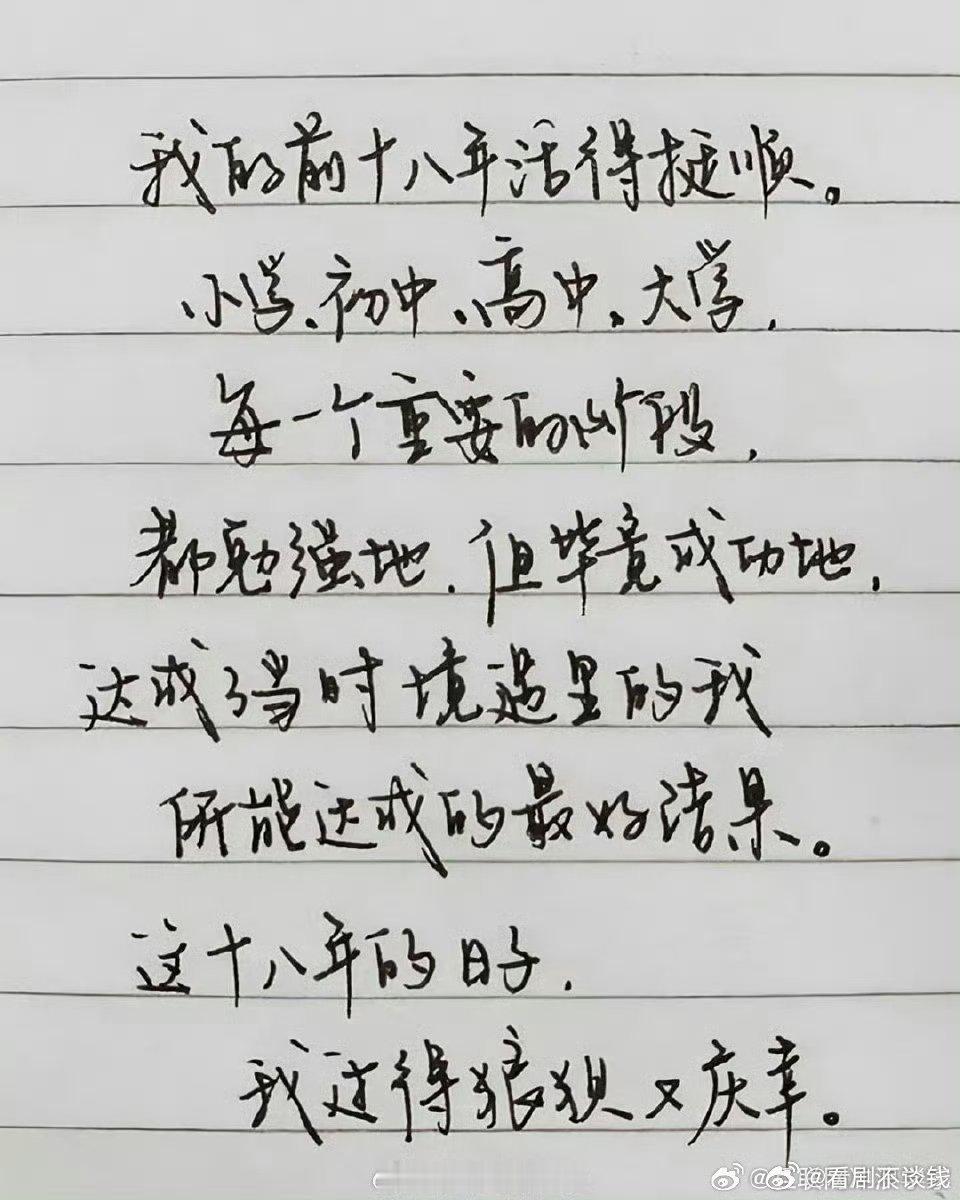 我的前十八年活得挺顺。
小学、初中、高中、大学,
每一个重要的阶段,
都勉强地,但毕竟成功地,
达成当时境遇里的我
所能达成的最好结果。
这十八年的日子,
我过得狼狈又庆幸。
看剧不谈钱